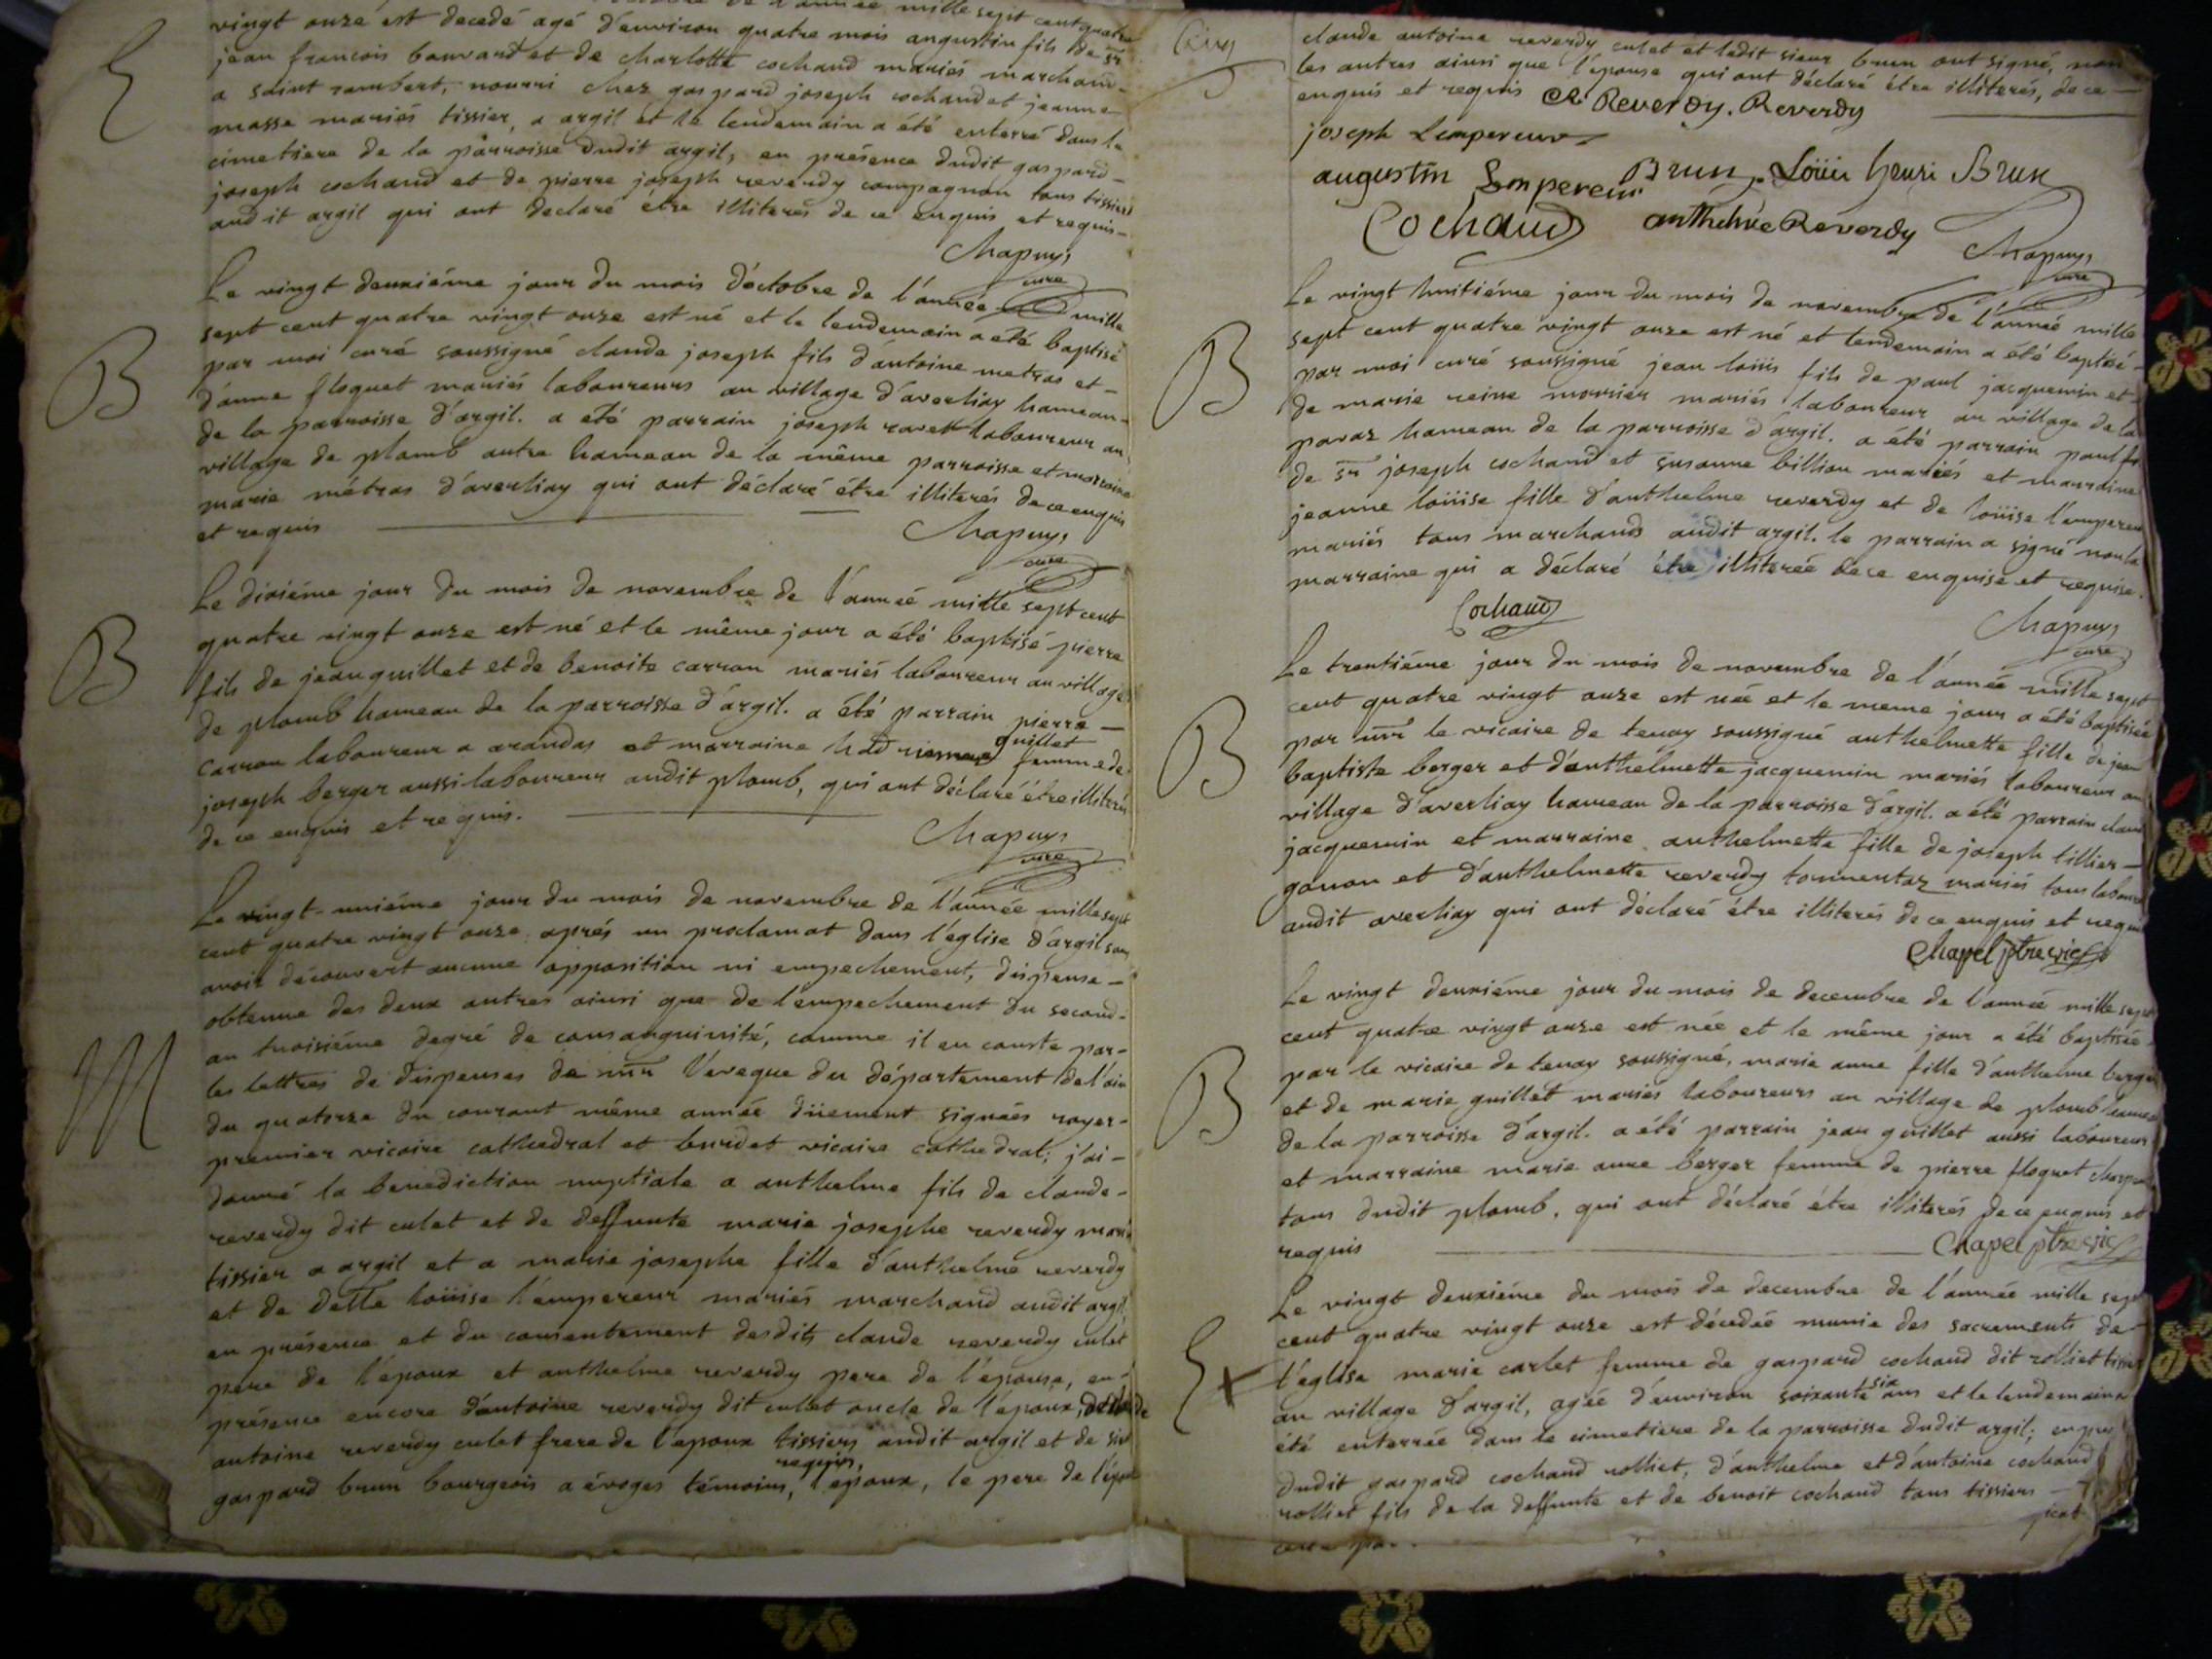 vingt onze est decedé agé d'environ quatre mois augustin fils de sr
jean francois bouvard et de charlotte cochand mariés marchand
a saint rambert, nourri chez gaspard joseph cochand et jeanne
masse mariés tissier, a argil et le lendemain a été enterré dans le
cimetiere de la parroisse dudit argil, en présence dudit gaspard
joseph cochand et de pierre joseph reverdy compagnon tous tissiers
audit argil qui ont declaré etre illiterés de ce enquis et requis
Chapuys
curé
B
Le vingt deuxiéme jour du mois d'octobre de l'année mille
sept cent quatre vingt onze est né et le lendemain a été baptisé
par moi curé soussigné claude joseph fils d'antoine metras et
d'anne floquet mariés laboureurs au village d'averliay hameau
de la parroisse d'argil. a été parrain joseph ravet laboureur au
village de plomb autre hameau de la même parroisse et marraine
marie métras d'averliay qui ont déclaré étre illiterés de ce enquis
et requis
Chapuys
curé
B
Le dixiéme jour du mois de novembre de l'année mille sept cent
quatre vingt onze est né et le même jour a été baptisé pierre
fils de jean guillet et de benoite carron mariés laboureur au village
de plomb hameau de la parroisse d'argil. a été parrain pierre
carron laboureur a arandas et marraine guillet femme de
joseph berger aussi laboureur audit plomb, qui ont déclaré étre illiterés
de ce enquis et requis.
Chapuys
curé
M
Le vingt-uniéme jour du mois de novembre de l'année mille sept
cent quatre vingt onze, aprés un proclamat dans l'église d'argil sans
avoir découvert aucune opposition ni empechement, dispense
obtenue des deux autres ainsi que de l'empechement du second
au troisiéme degré de consanguinité, comme il en conste par
les lettres de dispenses de mr l'éveque du département de l'ain
du quatorze du courant même année düement signées royer
premier vicaire cathedral et burdet vicaire cathedral; j'ai
donné la benediction nuptiale a anthelme fils de claude
reverdy dit culet et de deffunte marie josephe reverdy mariés
tissier a argil et a marie josephe fille d'anthelme reverdy
et de delle loüise l'empereur mariés marchand audit argil
en présence et du consentement desdits claude reverdy culet
pere de l'époux et anthelme reverdy pere de l'épouse, en
présence encore d'antoine reverdy dit culet oncle de l'époux,
antoine reverdy culet frere de l'epoux tissiers audit argil et de sieur
gaspard brun bourgeois a évoges témoins requis, l'époux, le pere de l'époux
claude antoine reverdy culet et ledit sieur brun ont signé, non
les autres ainsi que l'épouse qui ont déclaré étre illiterés, de ce
enquis et requis Reverdy. Reverdy
joseph Lempereur
augustin Lempereur Brun. Loüis henri Brun
Cochaud anthelme Reverdy
Chapuys
curé
B
Le vingt huitiéme jour du mois de novembre de l'année mille
sept cent quatre vingt onze est né et lendemain a été baptisé
par moi curé soussigné jean loüis fils de paul jacquemin et
de marie reine mounier mariés laboureur au village de la
paraz hameau de la parroisse d'argil. a été parrain paul fs
de sr joseph cochand et susanne billion mariés et marraine
jeanne loüise fille d'anthelme reverdy et de loüise l'empereur
mariés tous marchands audit argil. le parrain a signé non la
marraine qui a déclaré étre illiterée de ce enquise et requise.
Cochaud
Chapuys
curé
B
Le trentiéme jour du mois de novembre de l'année mille sept
cent quatre vingt onze est née et le meme jour a été baptisée
par mr le vicaire de tenay soussigné anthelmette fille de jean
baptiste berger et d'anthelmette jacquemin mariés laboureur au
village d'averliay hameau de la parroisse d'argil. a été parrain claude
jacquemin et marraine anthelmette fille de joseph tillier
gonon et d'anthelmette reverdy tonmentaz mariés tous laboureurs
audit averliay qui ont déclaré étre illiterés de ce enquis et requis
Chapel ptre vic
B
Le vingt deuxiéme jour du mois de decembre de l'année mille sept
cent quatre vingt onze est née et le même jour a été baptisée
par le vicaire de tenay soussigné, marie anne fille d'anthelme berger
et de marie guillet mariés laboureurs au village de plomb hameau
de la parroisse d'argil. a été parrain jean guillet aussi laboureur
et marraine marie anne berger femme de pierre floquet
tous dudit plomb, qui ont déclaré étre illiterés de ce enquis et
requis
Chapel ptre vic
Le vingt deuxiéme du mois de decembre de l'année mille sept
cent quatre vingt onze est décedée munie des sacrements de
l'eglise marie carlet femme de gaspard cochand dit rolliet tissier
au village d'argil, agée d'environ soixante six ans et le lendemain a
été enterrée dans le cimetiere de la parroisse dudit argil; en
dudit gaspard cochand rolliet, d'anthelme et d'antoine cochand
rolliet fils de la deffunte et de benoit cochand tous tissiers